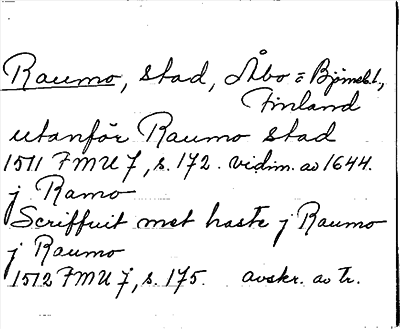 Raumo, stad, Åbo = Björneb.l.,
Finland
utanför Raumo stad
1511 FMU 7, s. 172. vidim. av 1644.
j Ramo
Scriffuit met haste j Raumo
j Raumo
1512 FMU 7, s. 175. avskr. av tr.